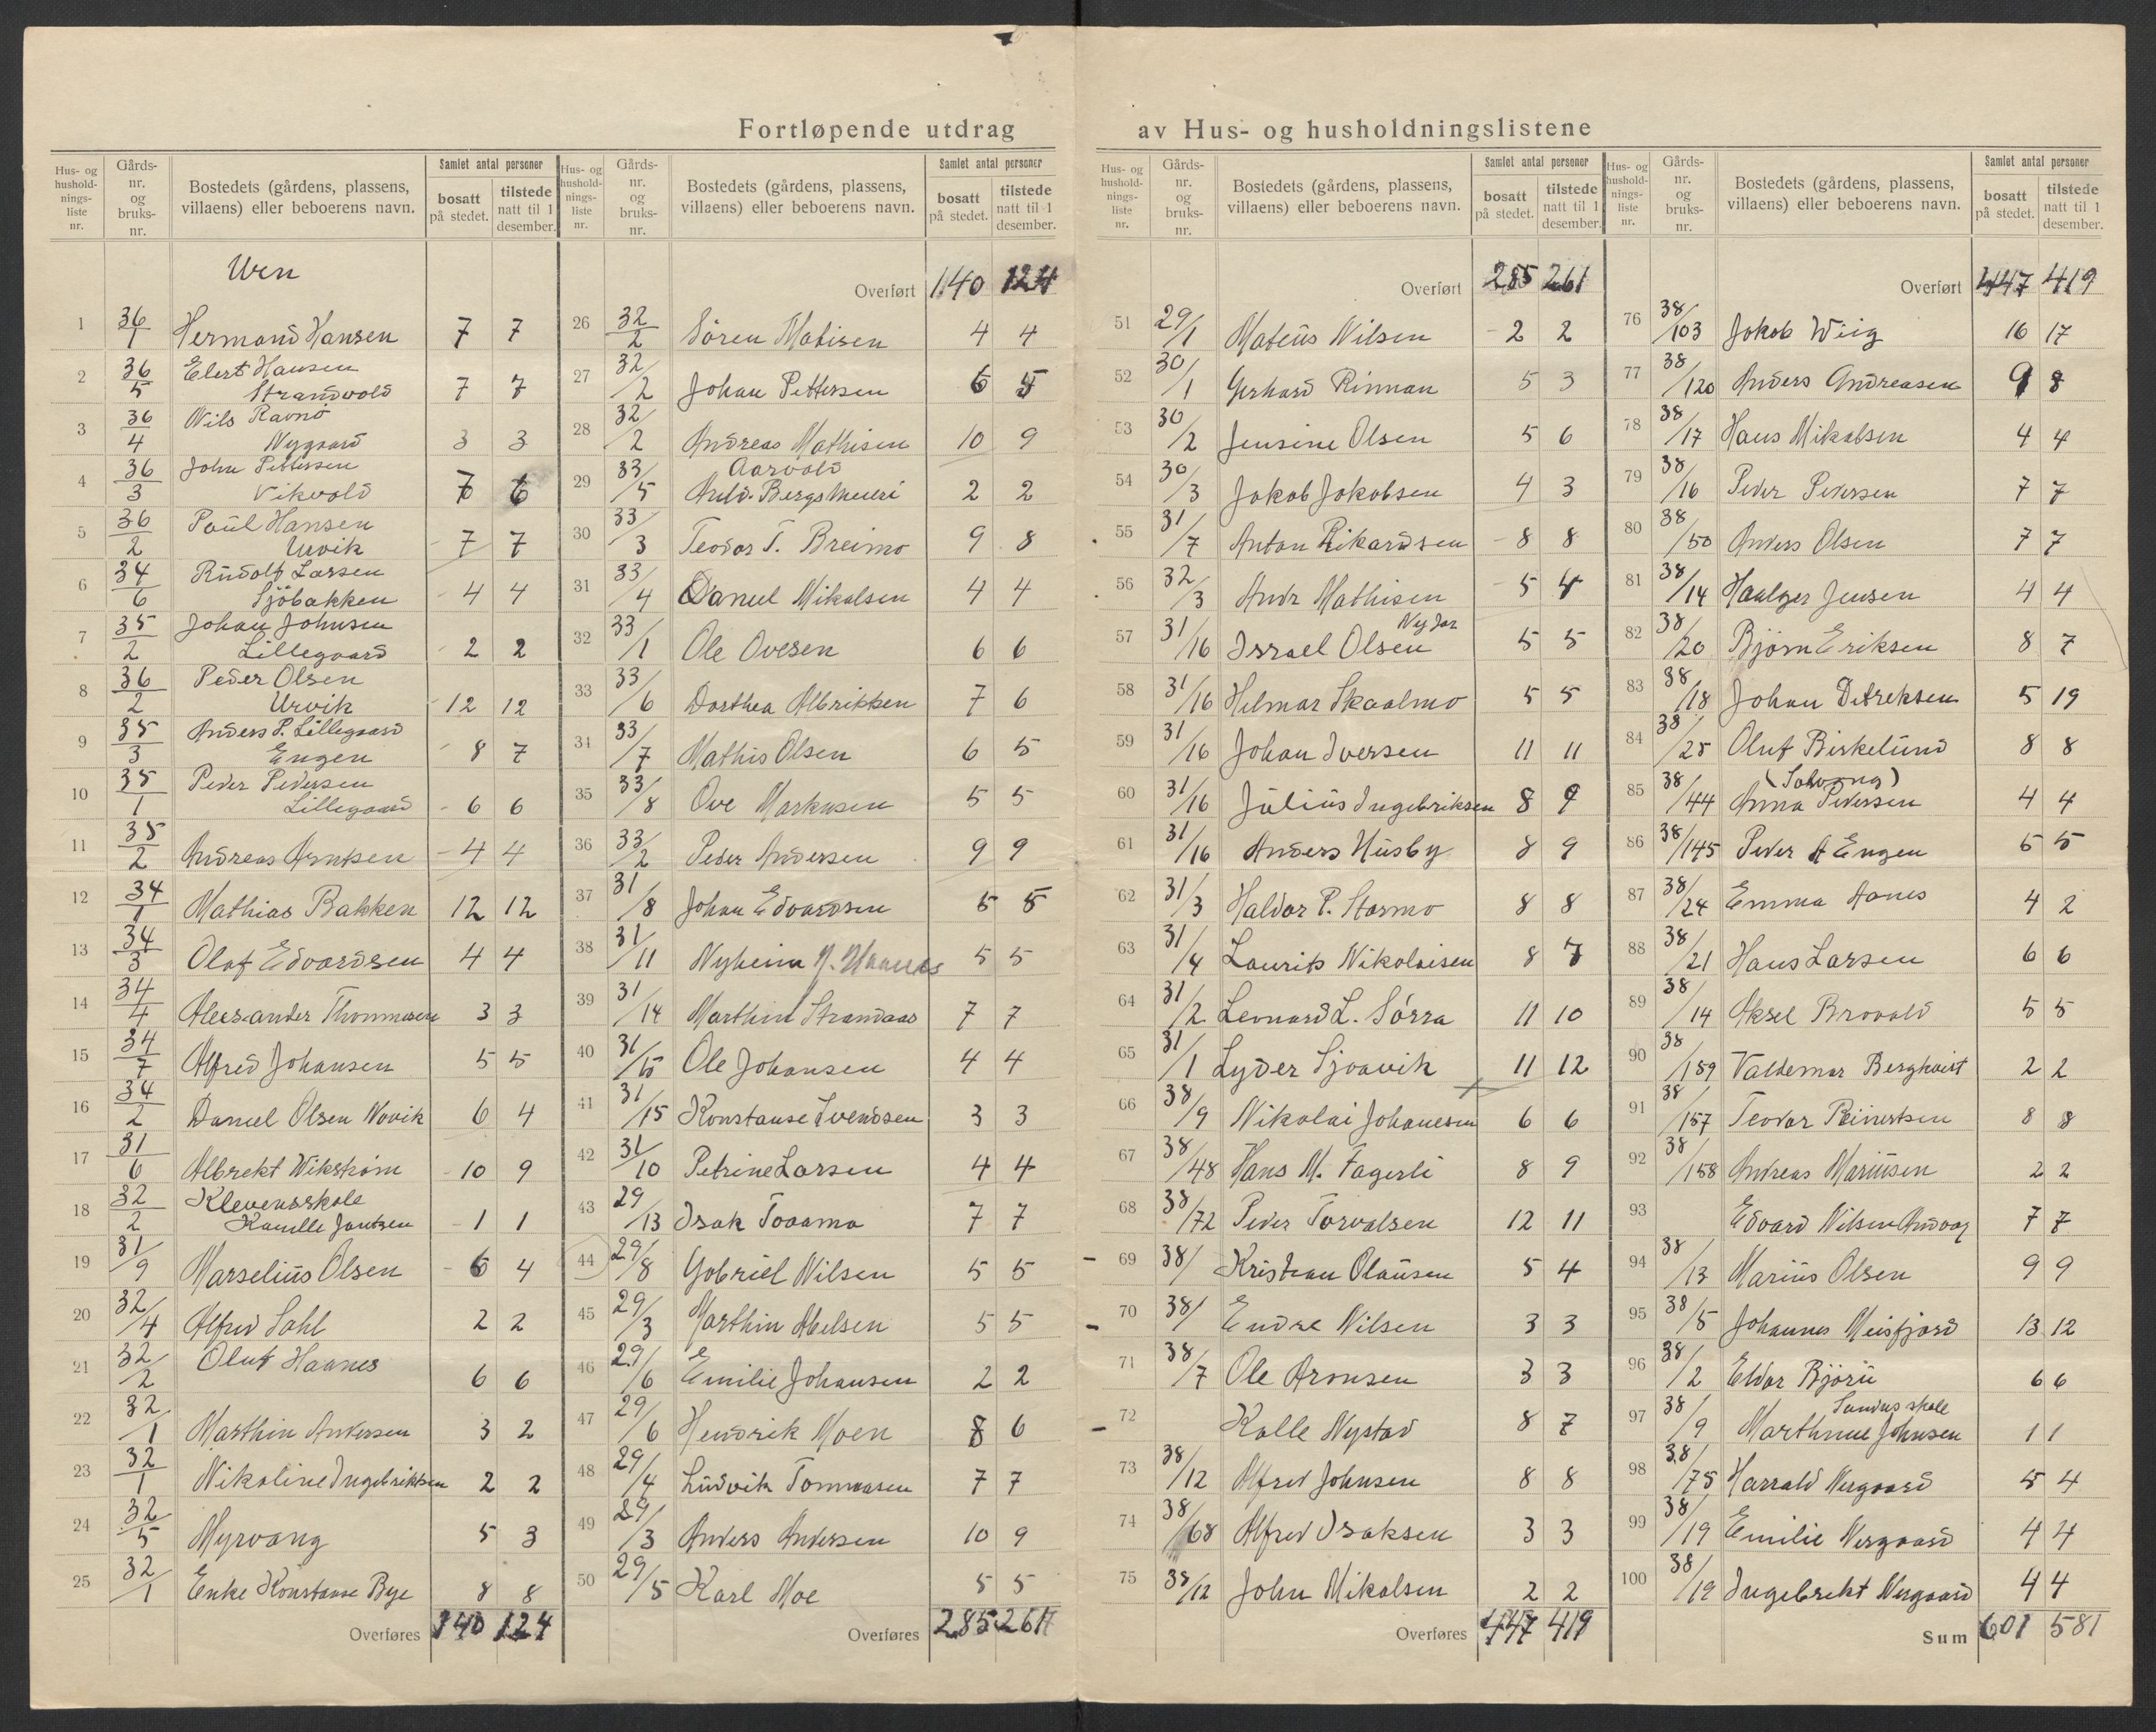 Fortløpende utdrag av Hus- og husholdningslistene
Hus- og husholdningsliste nr. | Gårdsnr. og bruksnr. | Bostedets (gårdens, plassens, villaens) eller beboerens navn. | Samlet antal personer | bosatt på stedet. | tilstede natt til 1 desember.
Uren
1 36/1 Hermand Hansen 7 7
2 36/5 Elert Hansen Strandvold 7 7
3 36/4 Nils Ravnö Nygaard 3 3
4 36/3 John Pettersen Vikvold 7 6
5 36/2 Paul Hansen Urvik 7 7
6 34/6 Rudolf Larsen Sjöbakken 4 4
7 35/2 Johan Johnsen Lillegaard 2 2
8 36/2 Peder Olsen Urvik 12 12
9 35/3 Anders P. Lillegaard Engen 8 7
10 35/1 Peder Pedersen Lillegaard 6 6
11 35/2 Andreas Arntsen 4 4
12 34/1 Mathias Bakken 12 12
13 34/3 Olaf Edvardsen 4 4
14 34/4 Alexsander Thommasen 3 3
15 34/7 Alfred Johansen 5 5
16 34/2 Daniel Olsen Novik 6 4
17 31/6 Albrekt Wikström 10 9
18 32/2 Klevenskole Kamille Jantzen 1 1
19 31/9 Marselius Olsen 6 4
20 32/4 Alfred Sahl 2 2
21 32/2 Oluf Haanes 6 6
22 32/1 Marthin Andersen 3 2
23 32/1 Nikoline Ingebriktsen 2 2
24 32/5 Myrvang 5 3
25 32/1 Enke Konstanse Bye 8 8
Overføres 140 124
Overført 140 124
26 32/2 Sören Matisen 4 4
27 32/2 Johan Pettersen 6 5
28 32/2 Andreas Mathisen 10 9
29 33/5 Aarvold Bergs 2 2
30 33/3 Teodor T. Breimo 9 8
31 33/4 Daniel Mikalsen 4 4
32 33/1 Ole Ovesen 6 6
33 33/6 Dorthea Albriktsen 7 6
34 33/7 Mathis Olsen 6 5
35 33/8 Ove Markusen 5 5
36 33/2 Peder Andersen 9 9
37 31/8 Johan Edvardsen 5 5
38 31/11 Nyheim N. Haanes 5 5
39 31/14 Marthin Strandaas 7 7
40 31/15 Ole Johansen 4 4
41 31/15 Konstanse Svendsen 3 3
42 31/10 Petrine Larsen 4 4
43 29/13 Isak Toaamo 7 7
44 29/8 Gabriel Nilsen 5 5
45 29/3 Marthin Abelsen 5 5
46 29/6 Emilie Johansen 2 2
47 29/6 Hendrik Moen 8 6
48 29/4 Ludvik Tommasen 7 7
49 29/3 Anders Andersen 10 9
50 29/5 Karl Moe 5 5
Overføres 285 261
Overført 285 261
51 29/1 Mateus Nilsen 2 2
52 30/1 Gerhard Rinnan 5 3
53 30/2 Jensine Olsen 5 6
54 30/3 Jakob Jakobsen 4 3
55 31/7 Anton Rikardsen 8 8
56 32/3 Andr Mathisen 5 4
57 31/16 Israel Olsen 5 5
58 31/16 Hilmar Skaalmo 5 5
59 31/16 Johan Iversen 11 11
60 31/16 Julius Ingebriksen 8 9
61 31/16 Anders Husby 8 9
62 31/3 Haldor P. Stormo 8 8
63 31/4 Laurits Nikolaisen 8 7
64 31/2 Leonard L. Sörra 11 10
65 31/1 Lyder Sjoavik 11 12
66 38/9 Nikolai Johanesen 6 6
67 38/48 Hans M. Fagerli 8 9
68 38/72 Peder Torvalsen 12 11
69 38/ Kristian Olausen 5 4
70 38/ Endre Nilsen 3 3
71 38/7 Ole Aronsen 3 3
72 Kalle Nystad 8 7
73 38/12 Alfred Johnsen 8 8
74 38/68 Alfred Isaksen 3 3
75 38/12 John Mikalsen 2 2
Overføres 447 419
Overført 447 419
76 38/103 Jakob Wiig 16 17
77 38/120 Anders Andreasen 9 8
78 38/17 Hans Mikalsen 4 4
79 38/16 Peder Pedersen 7 7
80 38/50 Anders Olsen 7 7
81 38/14 Haalger Jensen 4 4
82 38/20 Bjørn Eriksen 8 7
83 38/18 Johan Detreksen 5 19
84 38/25 Oluf Birkelund 8 8
85 38/44 (Solvang) Anna Pedersen 4 4
86 38/145 Peder A Engen 5 5
87 38/24 Emma Aanes 4 2
88 38/21 Hans Larsen 6 6
89 38/14 Aksel Brovold 5 5
90 38/159 Valdemar Bergkvist 2 2
91 38/157 Teodor Reinertsen 8 8
92 38/158 Andreas Mariusen 2 2
93 Edvard Nilsen 7 7
94 38/13 Marius Olsen 9 9
95 38/5 Johannes Meisfjord 13 12
96 38/2 Eldor Björu 6 6
97 38/9 Sandnes skole Marthine Johnsen 1 1
98 38/75 Harrald Nergaard 5 4
99 38/19 Emilie Nergaard 4 4
100 38/19 Ingebrekt Nergaard 4 4
Sum 601 581